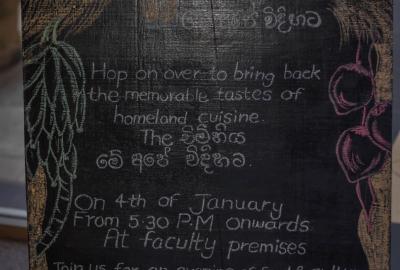 අපේ විදිහට
Hop on over to bring back
the memorable tastes of
homeland cuisine.
The
මේ අපේ විදිහට.
On 4th of January
From 5.30 P.M onwards
At faculty premises
Join us for an evening of